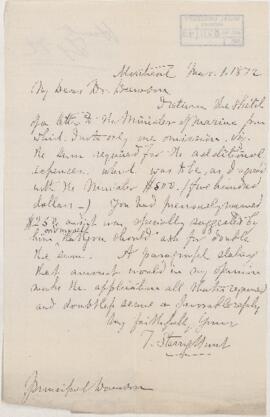 Montreal Mar. 1. 1872
My Dear Dr. Dawson
I return the sketch
of a letter to the Minister of Marine from
which I note one omission, viz.
the sum required for the additional
expenses. which was to be, as I agreed
with the Minister $500 (five hundred
dollars –) You had previously named
$250 and it was specially suggested by
him, and myself that you should ask for double
the sum. A paragraph stating
that amount would in my opinion
make the application all that is required
and doubtless secure a favorable reply
Very faithfully Yours
T. Sterry Hunt
Principal Dawson